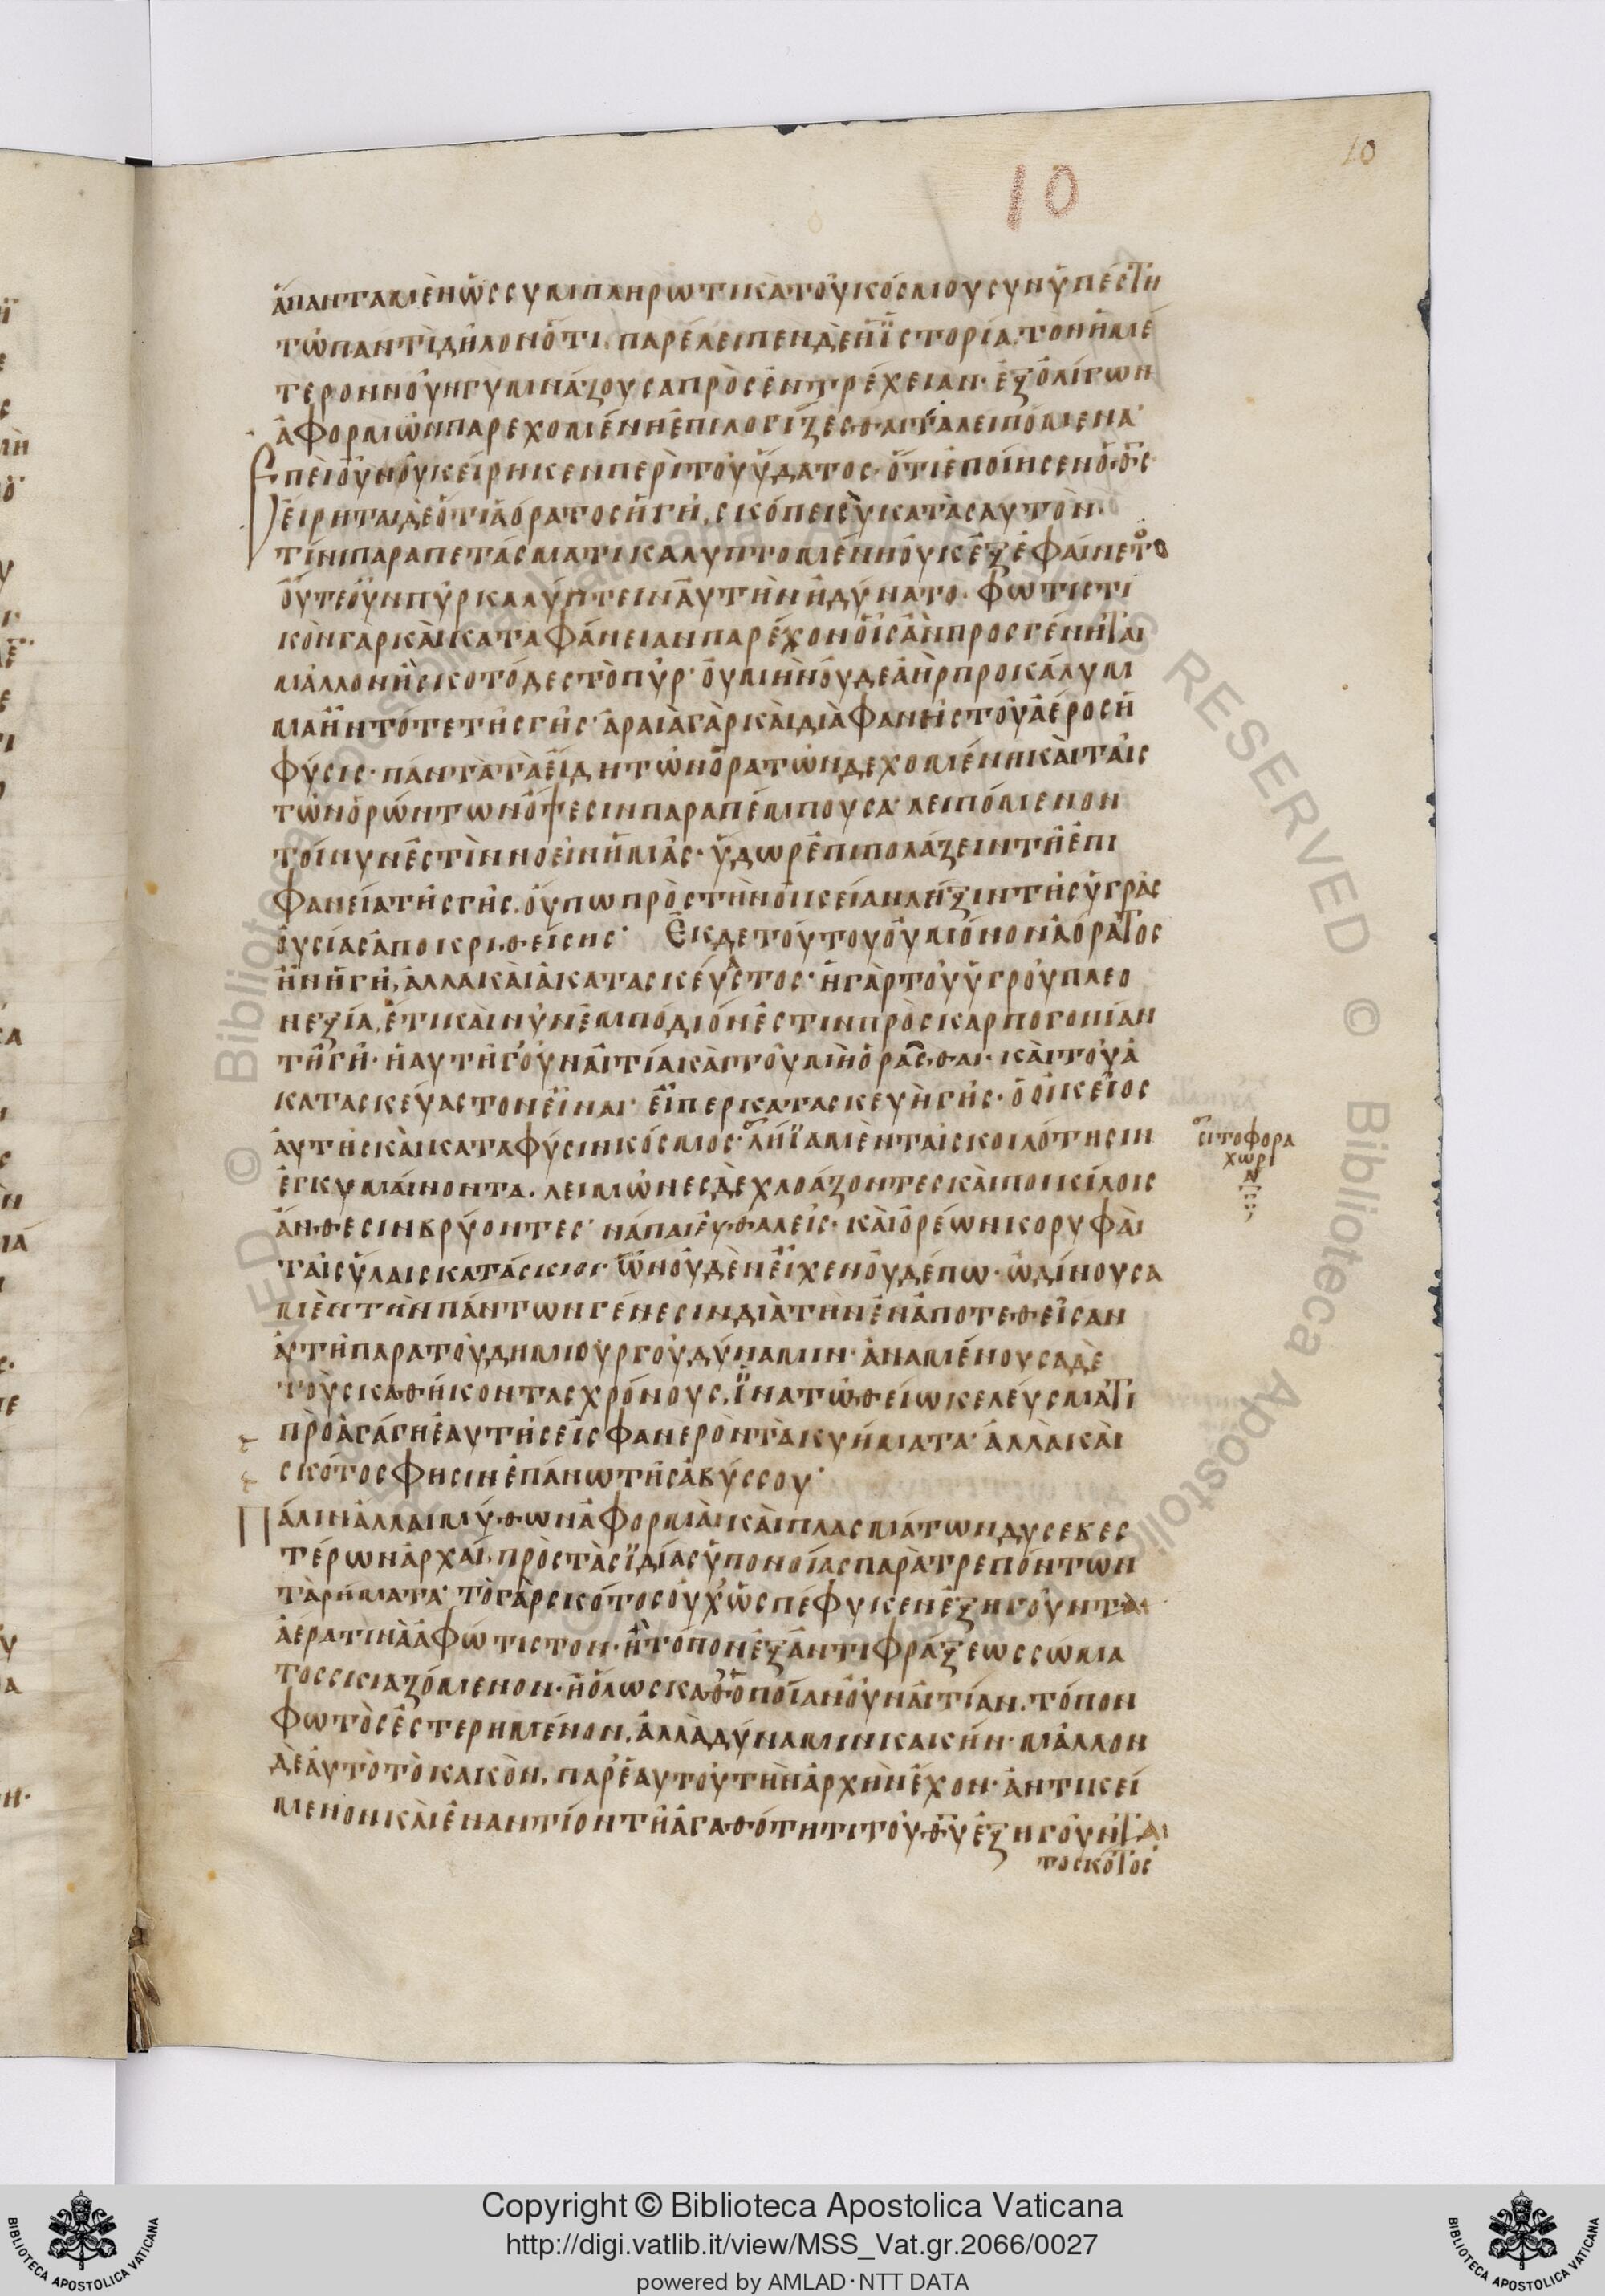 10
10
ἅπαντα μὲν ὡς συμπληρωτικὰ τοῦ κόσμου συνϋπέστη
τῶ παντὶ δηλονότι. παρέλειπεν δὲ ἡ ϊστορία. τὸν ἡμέ
τερον νοῦν γυμνάζουσα πρὸς ἐντρέχειαν. ἐξ ὀλίγων
ἀφορμῶν παρεχομένη ἐπιλογίζεσθαι τὰ λειπόμενα·
Ἐπεὶ οὖν οὐκ εἴρηκεν περὶ τοῦ ὕδατος. ὅτι ἐποίησεν ὁ θς
εἴρηται δὲ ὅτι ἀόρατος ἡ γῆ, σκόπει σὺ κατὰ σαυτὸν.
τίνι παραπετάσματι καλυπτομένη οὐκ ἐξεφαίνετο
οὔτε οὖν πῦρ καλύπτειν αὐτὴν ἠδύνατο. φωτιστι
κὸν γαρ καὶ καταφάνειαν παρέχον οἷς ἂν προσγένηται
μᾶλλον ἢ σκοτόδες τὸ πῦρ· οὐ μὴν οὐδε ἀὴρ προκάλυμ
μα ἦν τότε τῆς γῆς· ἀραιὰ γὰρ καὶ διὰφανὴς τοῦ ἀέρος ἡ
φύσις· πάντα τὰ εἴδη τῶν ὁρατῶν δεχομένη καὶ ταῖς
τῶν ὁρώντων ὄψεσιν παραπέμπουσα· λειπόμενον
τοίνυν ἐστὶν νοεῖν ἡμᾶς· ὕδωρ ἐπιπολάζειν τῆ ἐπι
φανεία τῆς γῆς. οὔπω πρὸς τὴν οἰκείαν λήξιν τῆς ὑγρᾶς
οὐσίας ἀποκριθείσης· Ἐκ δε τούτου οὐ μόνον ἀόρατος
ἦν ἡ γῆ, ἀλλα καὶ ἀκατασκεύαστος· ἡ γὰρ τοῦ ὑγροῦ πλεο
νεξία, ἔτι καὶ νῦν ἐμπόδιόν ἐστιν πρὸς καρπογονίαν
τῆ γῆ· ἡ αυτὴ γοῦν αἰτία καὶ τοῦ μὴ ὁρᾶσθαι· καὶ τοῦ ἀ
κατασκεύαστον εἶναι· εἴπερ κατασκευὴ γῆς· ὁ οἰκεῖος
ἀυτῆς καὶ κατα φύσιν κόσμος· λήϊα μὲν ταῖς κοιλότησιν
ἐγκυμαίνοντα. λειμῶνες δὲ χλοάζοντες καὶ ποικίλοις
ἄνθεσιν βρύοντες· νάπαι εὐθαλεῖς· καὶ ὀρέων κορυφαὶ
ταῖς ὕλαις κατάσκιοι· ὧν οὐδὲν εἶχεν οὐδέπω· ὠδίνουσα
μὲν τὴν πάντων γένεσιν διὰ τὴν ἐναποτεθεῖσαν
ἀυτῆ παρα τοῦ δημιουργοῦ δύναμιν· ἀναμένουσα δὲ
τοὺς καθήκοντας χρόνους, ϊνα τῶ θείω κελεύσματι
πρὸαγάγη ἑαυτῆς εἰς φανερὸν τὰ κυήματα· ἀλλὰ καὶ
σκότος φησιν ἐπάνω τῆς ἀβύσσου·
Πάλιν ἄλλαι μύθων ἀφορμαὶ καὶ πλασμάτων δυσεβες
τέρων ἀρχαί. πρὸς τὰς ϊδίας ὑπονοίας παρὰτρεπόντων
τὰ ρήματα· τὸ γὰρ σκότος οὐχ ὡς πέφυκεν ἐξηγοῦνται
ἀέρα τινὰ ἀφώτιστον· ἢ τόπον ἐξ ἀντιφράξεως σώμα
τος σκιαζόμενον· ἢ ὅλως καθ ὁποίαν οὖν αἰτίαν. τόπον
φωτὸς ἐστερημένον, ἀλλὰ δύναμιν κακήν· μᾶλλον
δὲ ἀυτὸ τὸ κακὸν, παρ ἑαυτοῦ τὴν ἀρχὴν ἔχον· ἀντικεί
μενον καὶ ἐναντίον τῆ ἀγαθότητι τοῦ θυ ἐξηγοῦνται
το σκότος
σιτοφορα
χωρι
Copyright © Biblioteca Apostolica Vaticana
http://digi.vatlib.it/view/MSS_Vat.gr.2066/0027
powered by AMLAD·NTT DATA